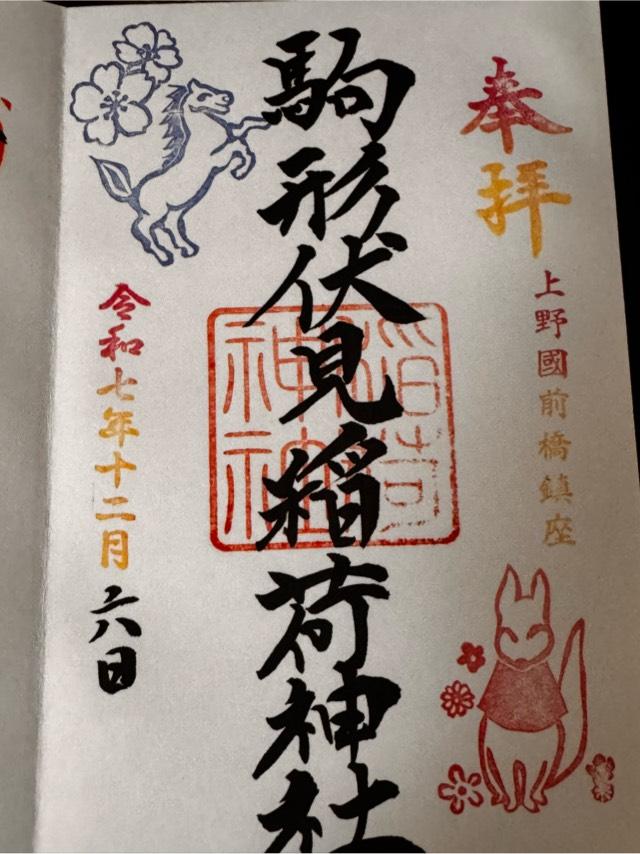 奉拝
上野國前橋鎮座
駒形伏見稲荷神社
令和七年十二月六日